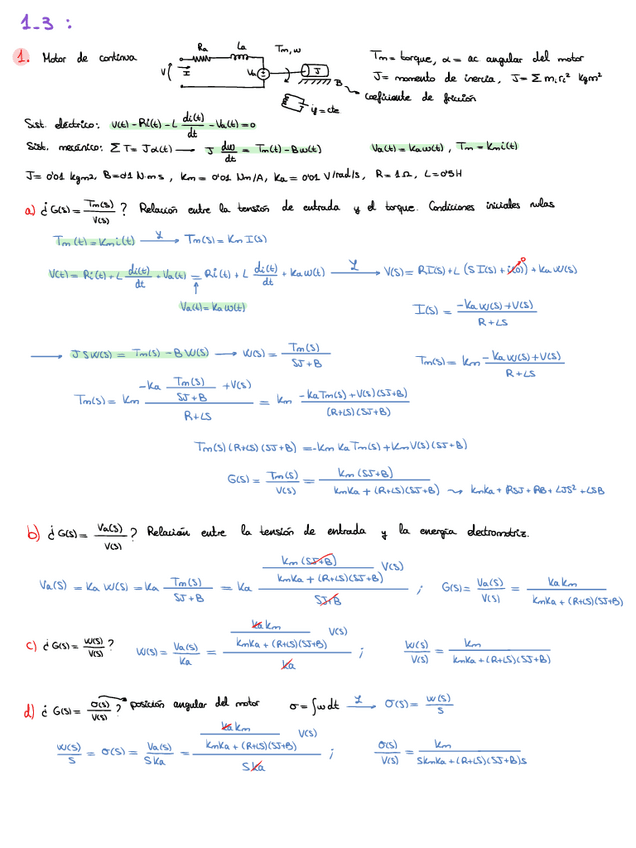 1_3 :
1. Motor de continua
Ra La Tm, w
V I Va J B
φ = cte
Tm = torque, α = ac angular del motor
J = momento de inercia, J = Σ mi ri² kgm²
coeficiente de fricción
Sist. eléctrico: V(t) - Ri(t) - L di(t)/dt - Va(t) = 0
Sist. mecánico: ΣT = Jα(t) → J dw/dt = Tm(t) - Bw(t) Va(t) = Ka w(t), Tm = Km i(t)
J = 0'01 kgm², B = 0'1 N·m·s, Km = 0'01 Nm/A, Ka = 0'01 V/rad/s, R = 1Ω, L = 0'5H
a) ¿G(s) = Tm(s)/V(s)? Relación entre la tensión de entrada y el torque. Condiciones iniciales nulas
Tm(t) = Km i(t) →ℒ Tm(s) = Km I(s)
V(t) = Ri(t) + L di(t)/dt + Va(t) = Ri(t) + L di(t)/dt + Ka w(t) →ℒ V(s) = RI(s) + L (S I(s) + i(0)) + Ka W(s)
0
Va(t) = Ka w(t)
I(s) = (-Ka W(s) + V(s))/(R + LS)
→ JSW(s) = Tm(s) - BW(s) → W(s) = Tm(s)/(SJ + B)
Tm(s) = Km (-Ka W(s) + V(s))/(R + LS)
Tm(s) = Km (-Ka Tm(s)/(SJ + B) + V(s))/(R + LS) = Km (-Ka Tm(s) + V(s)(SJ + B))/((R + LS)(SJ + B))
Tm(s)(R + LS)(SJ + B) = -Km Ka Tm(s) + Km V(s)(SJ + B)
G(s) = Tm(s)/V(s) = Km (SJ + B)/(KmKa + (R + LS)(SJ + B)) ⤳ KmKa + RSJ + RB + LJS² + LSB
b) ¿G(s) = Va(s)/V(s)? Relación entre la tensión de entrada y la energía electromotriz.
Va(s) = Ka W(s) = Ka Tm(s)/(SJ + B) = Ka (Km (SJ + B)/(KmKa + (R + LS)(SJ + B)) V(s))/(SJ + B) ; G(s) = Va(s)/V(s) = Ka Km/(KmKa + (R + LS)(SJ + B))
c) ¿G(s) = W(s)/V(s)? W(s) = Va(s)/Ka = (Ka Km/(KmKa + (R + LS)(SJ + B)) V(s))/Ka ; W(s)/V(s) = Km/(KmKa + (R + LS)(SJ + B))
d) ¿G(s) = σ(s)/V(s)? posición angular del motor σ = ∫w dt →ℒ σ(s) = W(s)/S
W(s)/S = σ(s) = Va(s)/(S Ka) = (Ka Km/(KmKa + (R + LS)(SJ + B)) V(s))/(S Ka) ; σ(s)/V(s) = Km/(SKmKa + (R + LS)(SJ + B)S)